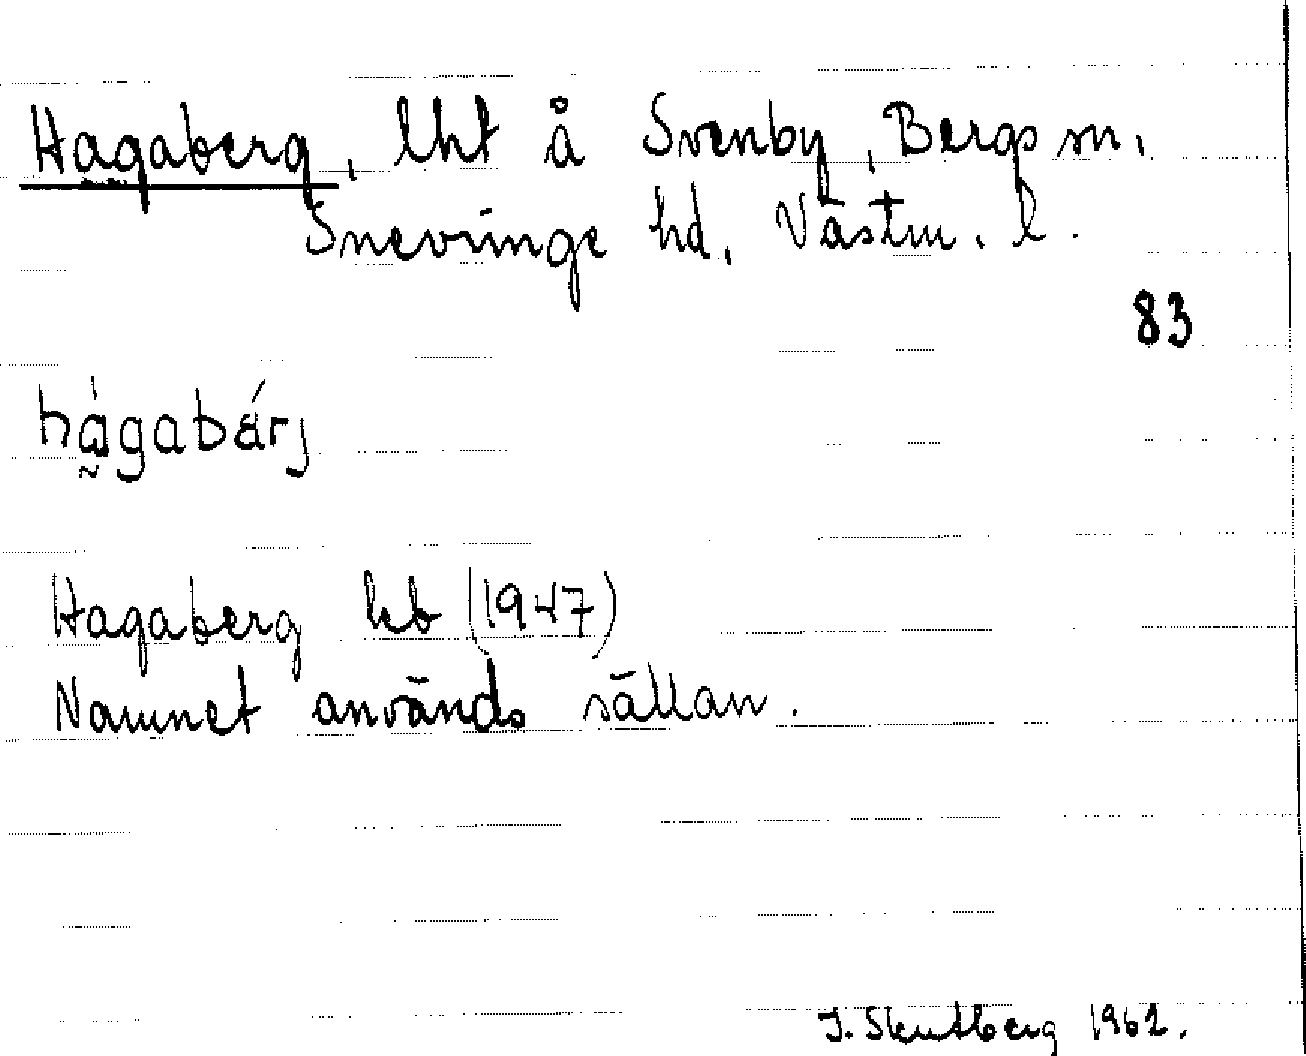 Hagaberg, lht å Svenby, Bergs sn,
Snevringe hd, Västm. l.
83
hågabärj
Hagaberg kb (1947)
Namnet används sällan.
J. Skutberg 1962.